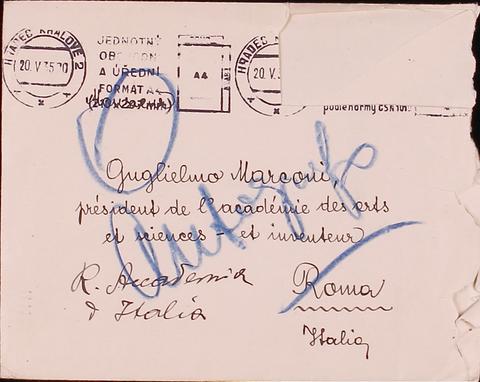 HRADEC KRÁLOVÉ 2
20. V 35. 20
JEDNOTNÝ
OBCHODNÍ
A ÚŘEDNÍ
FORMÁT A4
(210×297 MM)
A4
HRADEC
20. V. 3
podle normy ČSN 101
Guglielmo Marconi,
président de l'académie des arts
et sciences - et inventeur
Autograf
R. Accademia
d'Italia
Roma
Italia